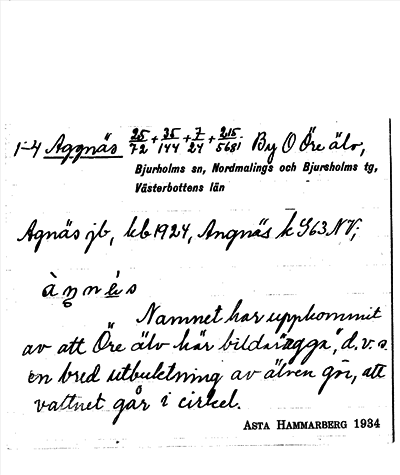 1-4 Aggnäs 25/72 + 35/144 + 7/24 + 215/5681 By O Öre älv,
Bjurholms sn, Nordmalings och Bjurholms tg,
Västerbottens län
Agnäs jb, kb 1924, Angnäs k 963 NV;
Namnet har uppkommit
av att Öre älv här bildar "agga", d.v.s.
en bred utbuktning av älven gör, att
vattnet går i cirkel.
ASTA HAMMARBERG 1934